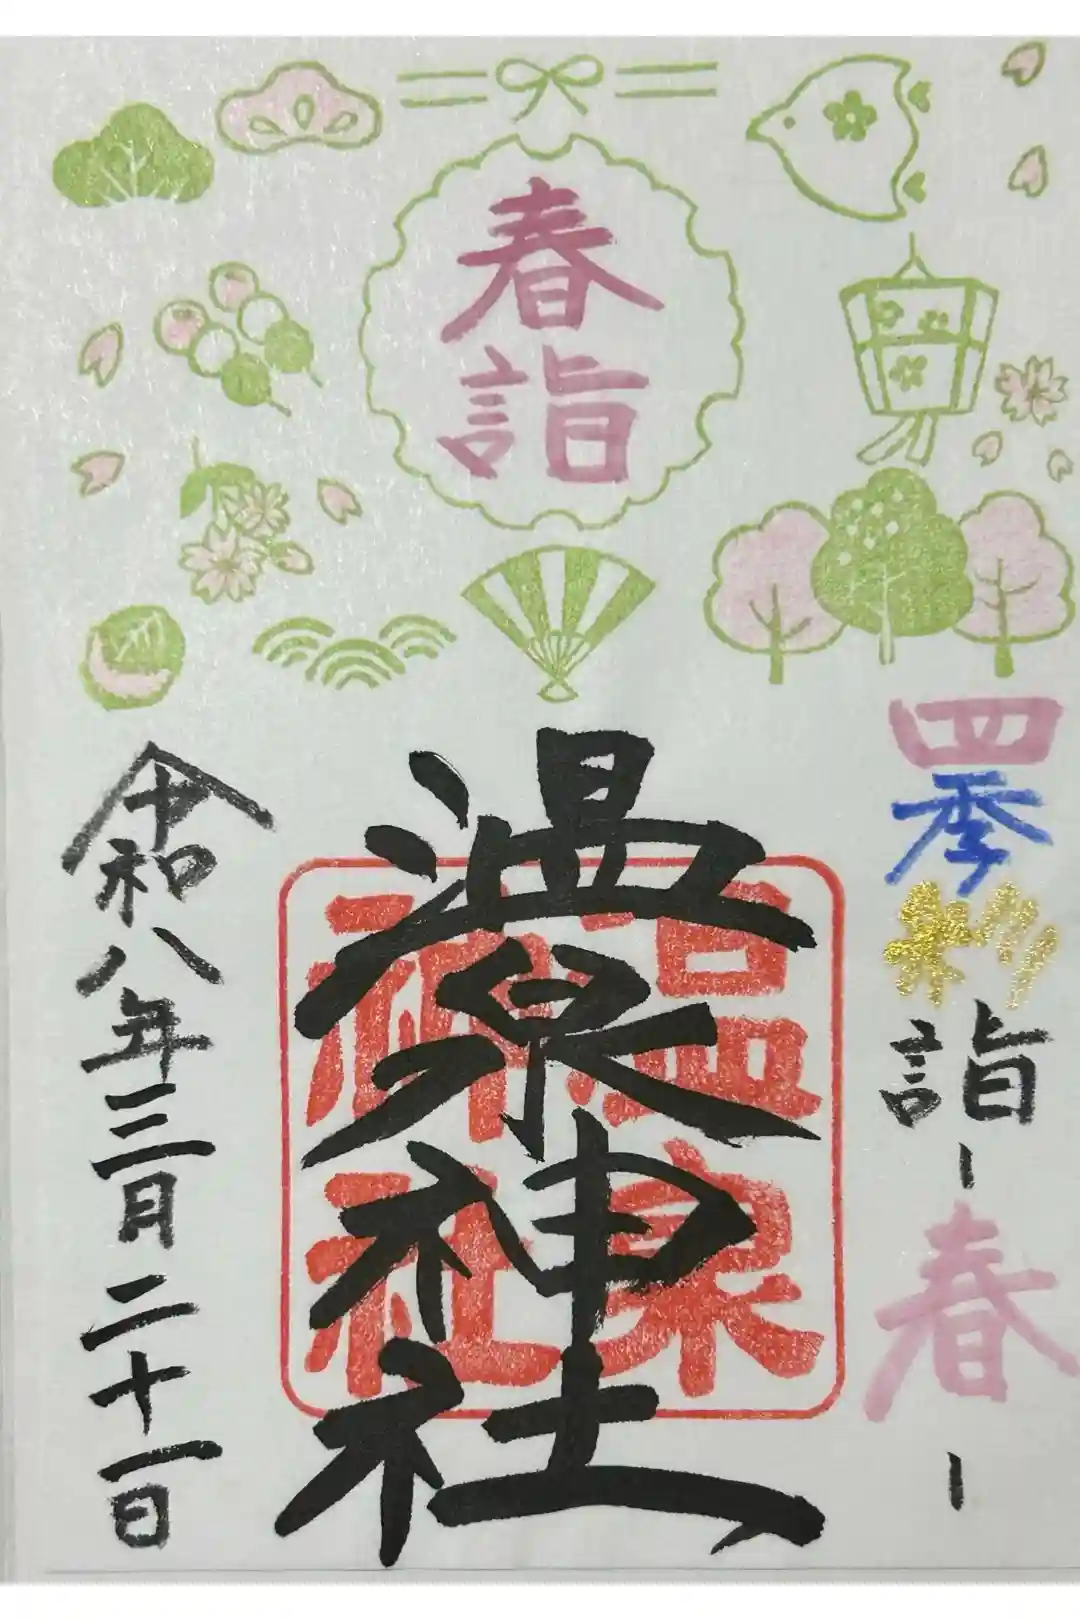 春詣
四季彩詣
-春-
温泉神社
温泉神社
令和八年三月二十一日